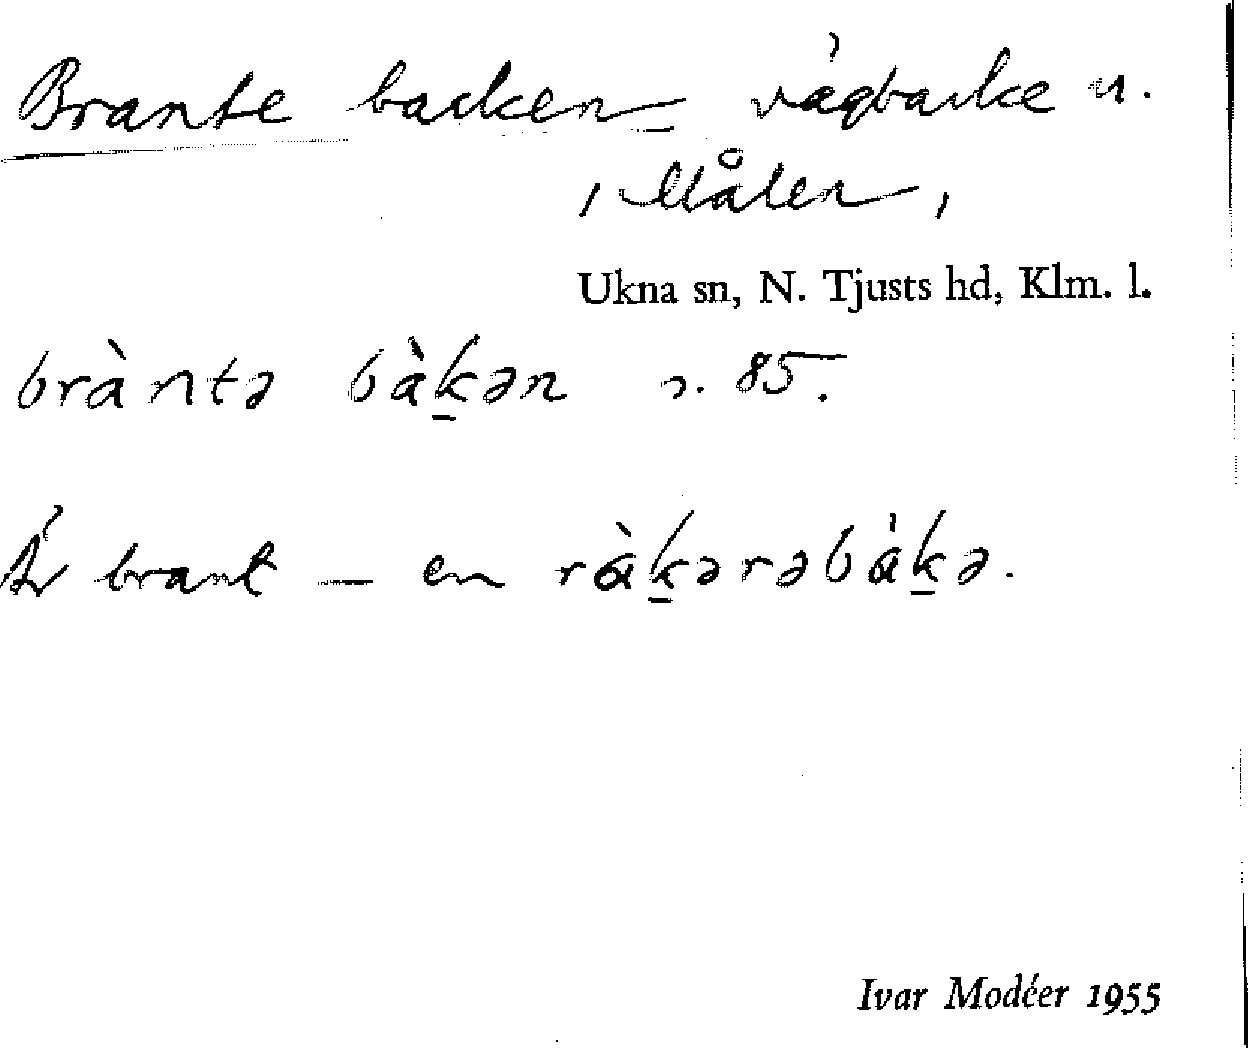 Brante backen vägbacke u.
, Målen ,
Ukna sn, N. Tjusts hd, Klm. l.
bràntə bàk̲ən s. 85.
Är brant – en ràk̲ərəbàk̲ə.
Ivar Modéer 1955